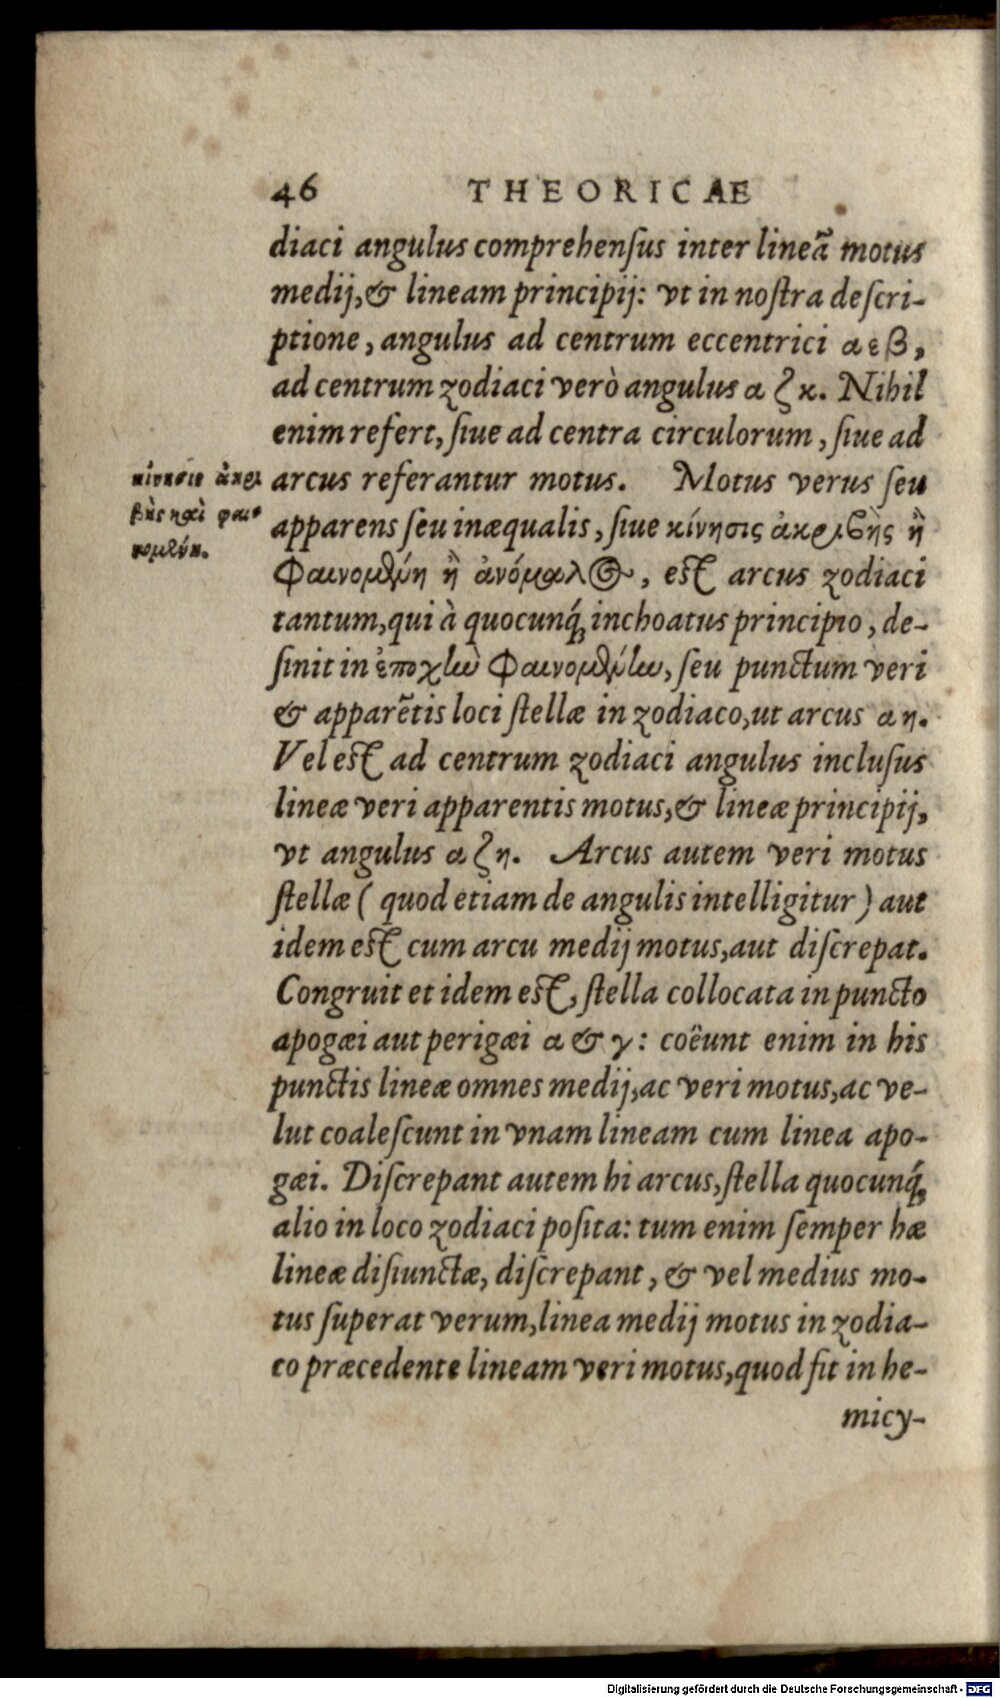 46 THEORICAE
diaci angulus comprehensus inter lineã motus
medij,& lineam principij: vt in nostra descri-
ptione, angulus ad centrum eccentrici α ε β,
ad centrum zodiaci verò angulus α ζ κ. Nihil
enim refert, siue ad centra circulorum, siue ad
arcus referantur motus. Motus verus seu
κίνησις ἀκρι
βὴς καὶ φαι
νομένη.
apparens seu inæqualis, siue κίνησις ἀκριβὴς ἢ
φαινομένη ἢ ἀνόμαλος, est arcus zodiaci
tantum, qui à quocunq́; inchoatus principio, de-
sinit in ἐποχὴν φαινομένην, seu punctum veri
& apparẽtis loci stellæ in zodiaco,ut arcus α η.
Vel est ad centrum zodiaci angulus inclusus
lineæ veri apparentis motus,& lineæ principij,
vt angulus α ζ η. Arcus autem veri motus
stellæ ( quod etiam de angulis intelligitur ) aut
idem est cum arcu medij motus,aut discrepat.
Congruit et idem est, stella collocata in puncto
apogæi aut perigæi α & γ: coëunt enim in his
punctis lineæ omnes medij,ac veri motus,ac ve-
lut coalescunt in vnam lineam cum linea apo-
gæi. Discrepant autem hi arcus,stella quocunq́;
alio in loco zodiaci posita: tum enim semper hæ
lineæ disiunctæ, discrepant, & vel medius mo-
tus superat verum,linea medij motus in zodia-
co præcedente lineam veri motus,quod fit in he-
micy-
Digitalisierung gefördert durch die Deutsche Forschungsgemeinschaft - DFG